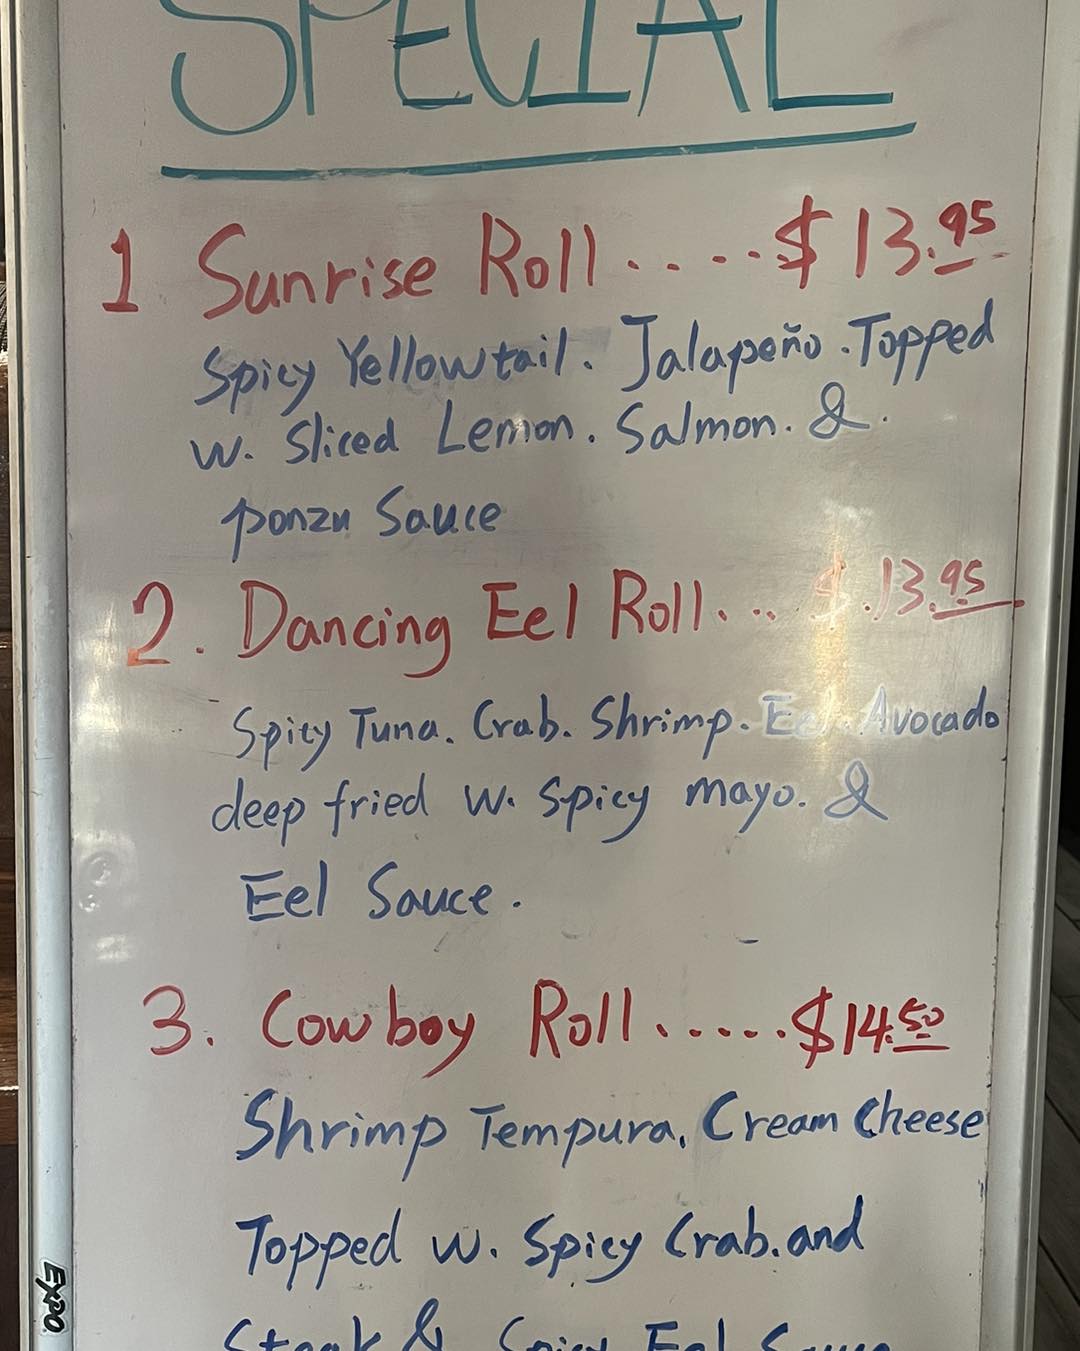 SPECIAL
1 Sunrise Roll ..... $13.95
Spicy Yellowtail. Jalapeño. Topped
w. Sliced Lemon. Salmon. &
ponzu Sauce
2. Dancing Eel Roll... $.13.95
Spicy Tuna. Crab. Shrimp. Eel. Avocado
deep fried w. Spicy mayo. &
Eel Sauce.
3. Cowboy Roll ..... $14.50
Shrimp Tempura, Cream Cheese
Topped w. Spicy Crab. and
Steak & Spicy Eel Sauce
EXPO